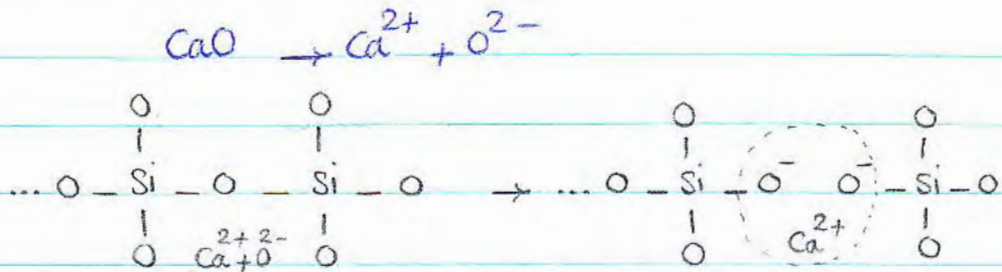 CaO → Ca²⁺ + O²⁻
O O O O
| | | |
... O – Si – O – Si – O → ... O – Si – O⁻ O⁻ – Si – O
| | | |
O Ca²⁺ + O²⁻ O O Ca²⁺ O